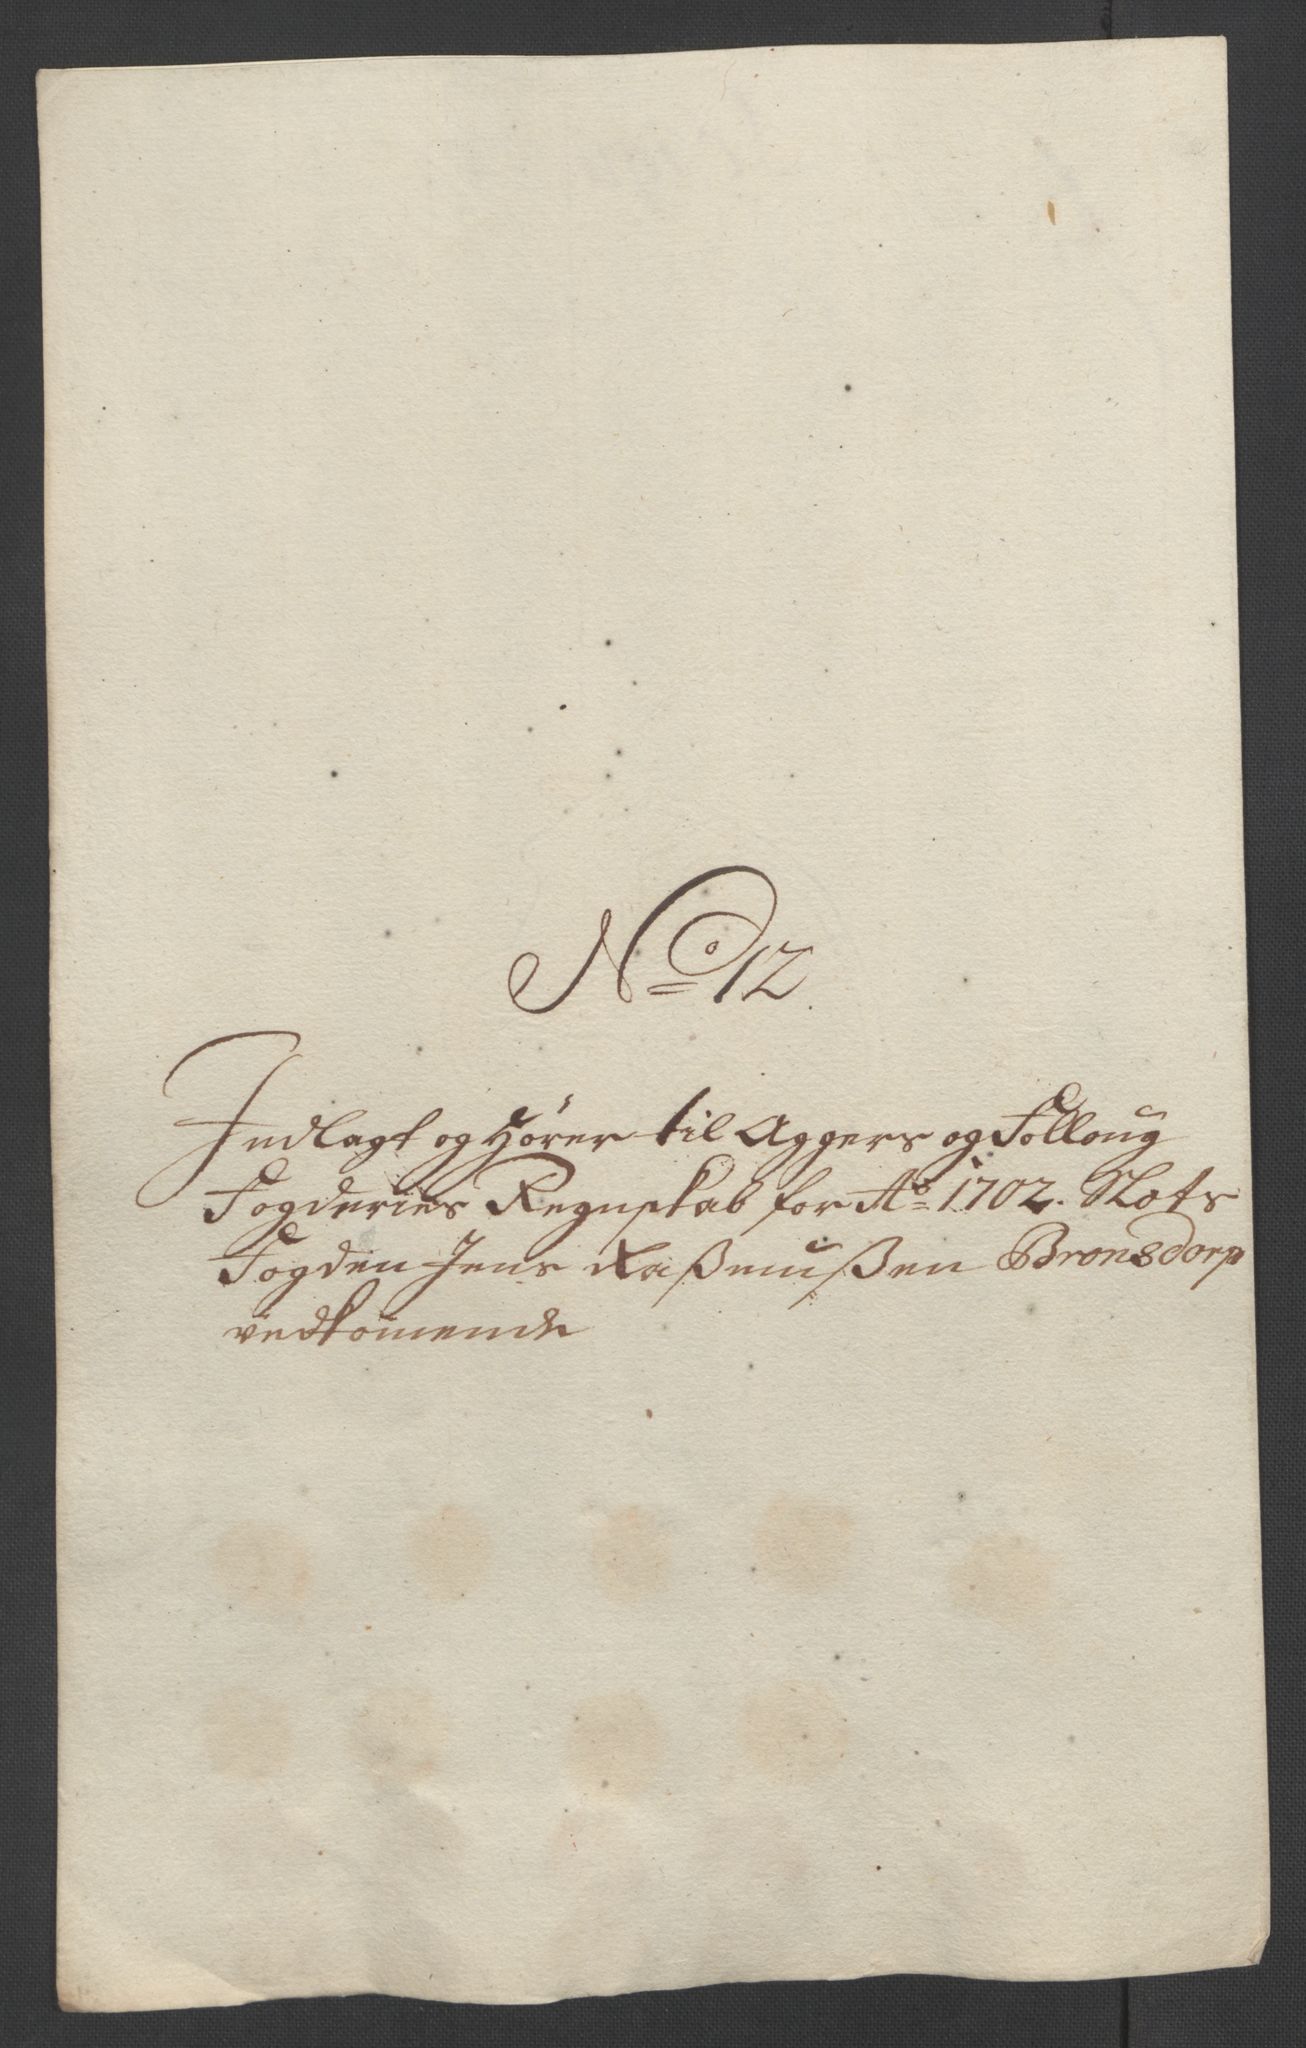 No 12.
Indlagt og hörer til Aggers og Folloug
Fogderies Regnskab for Ao 1702. Slots
Fogden Jens Raßmußen Bronsdorp
vedkomende